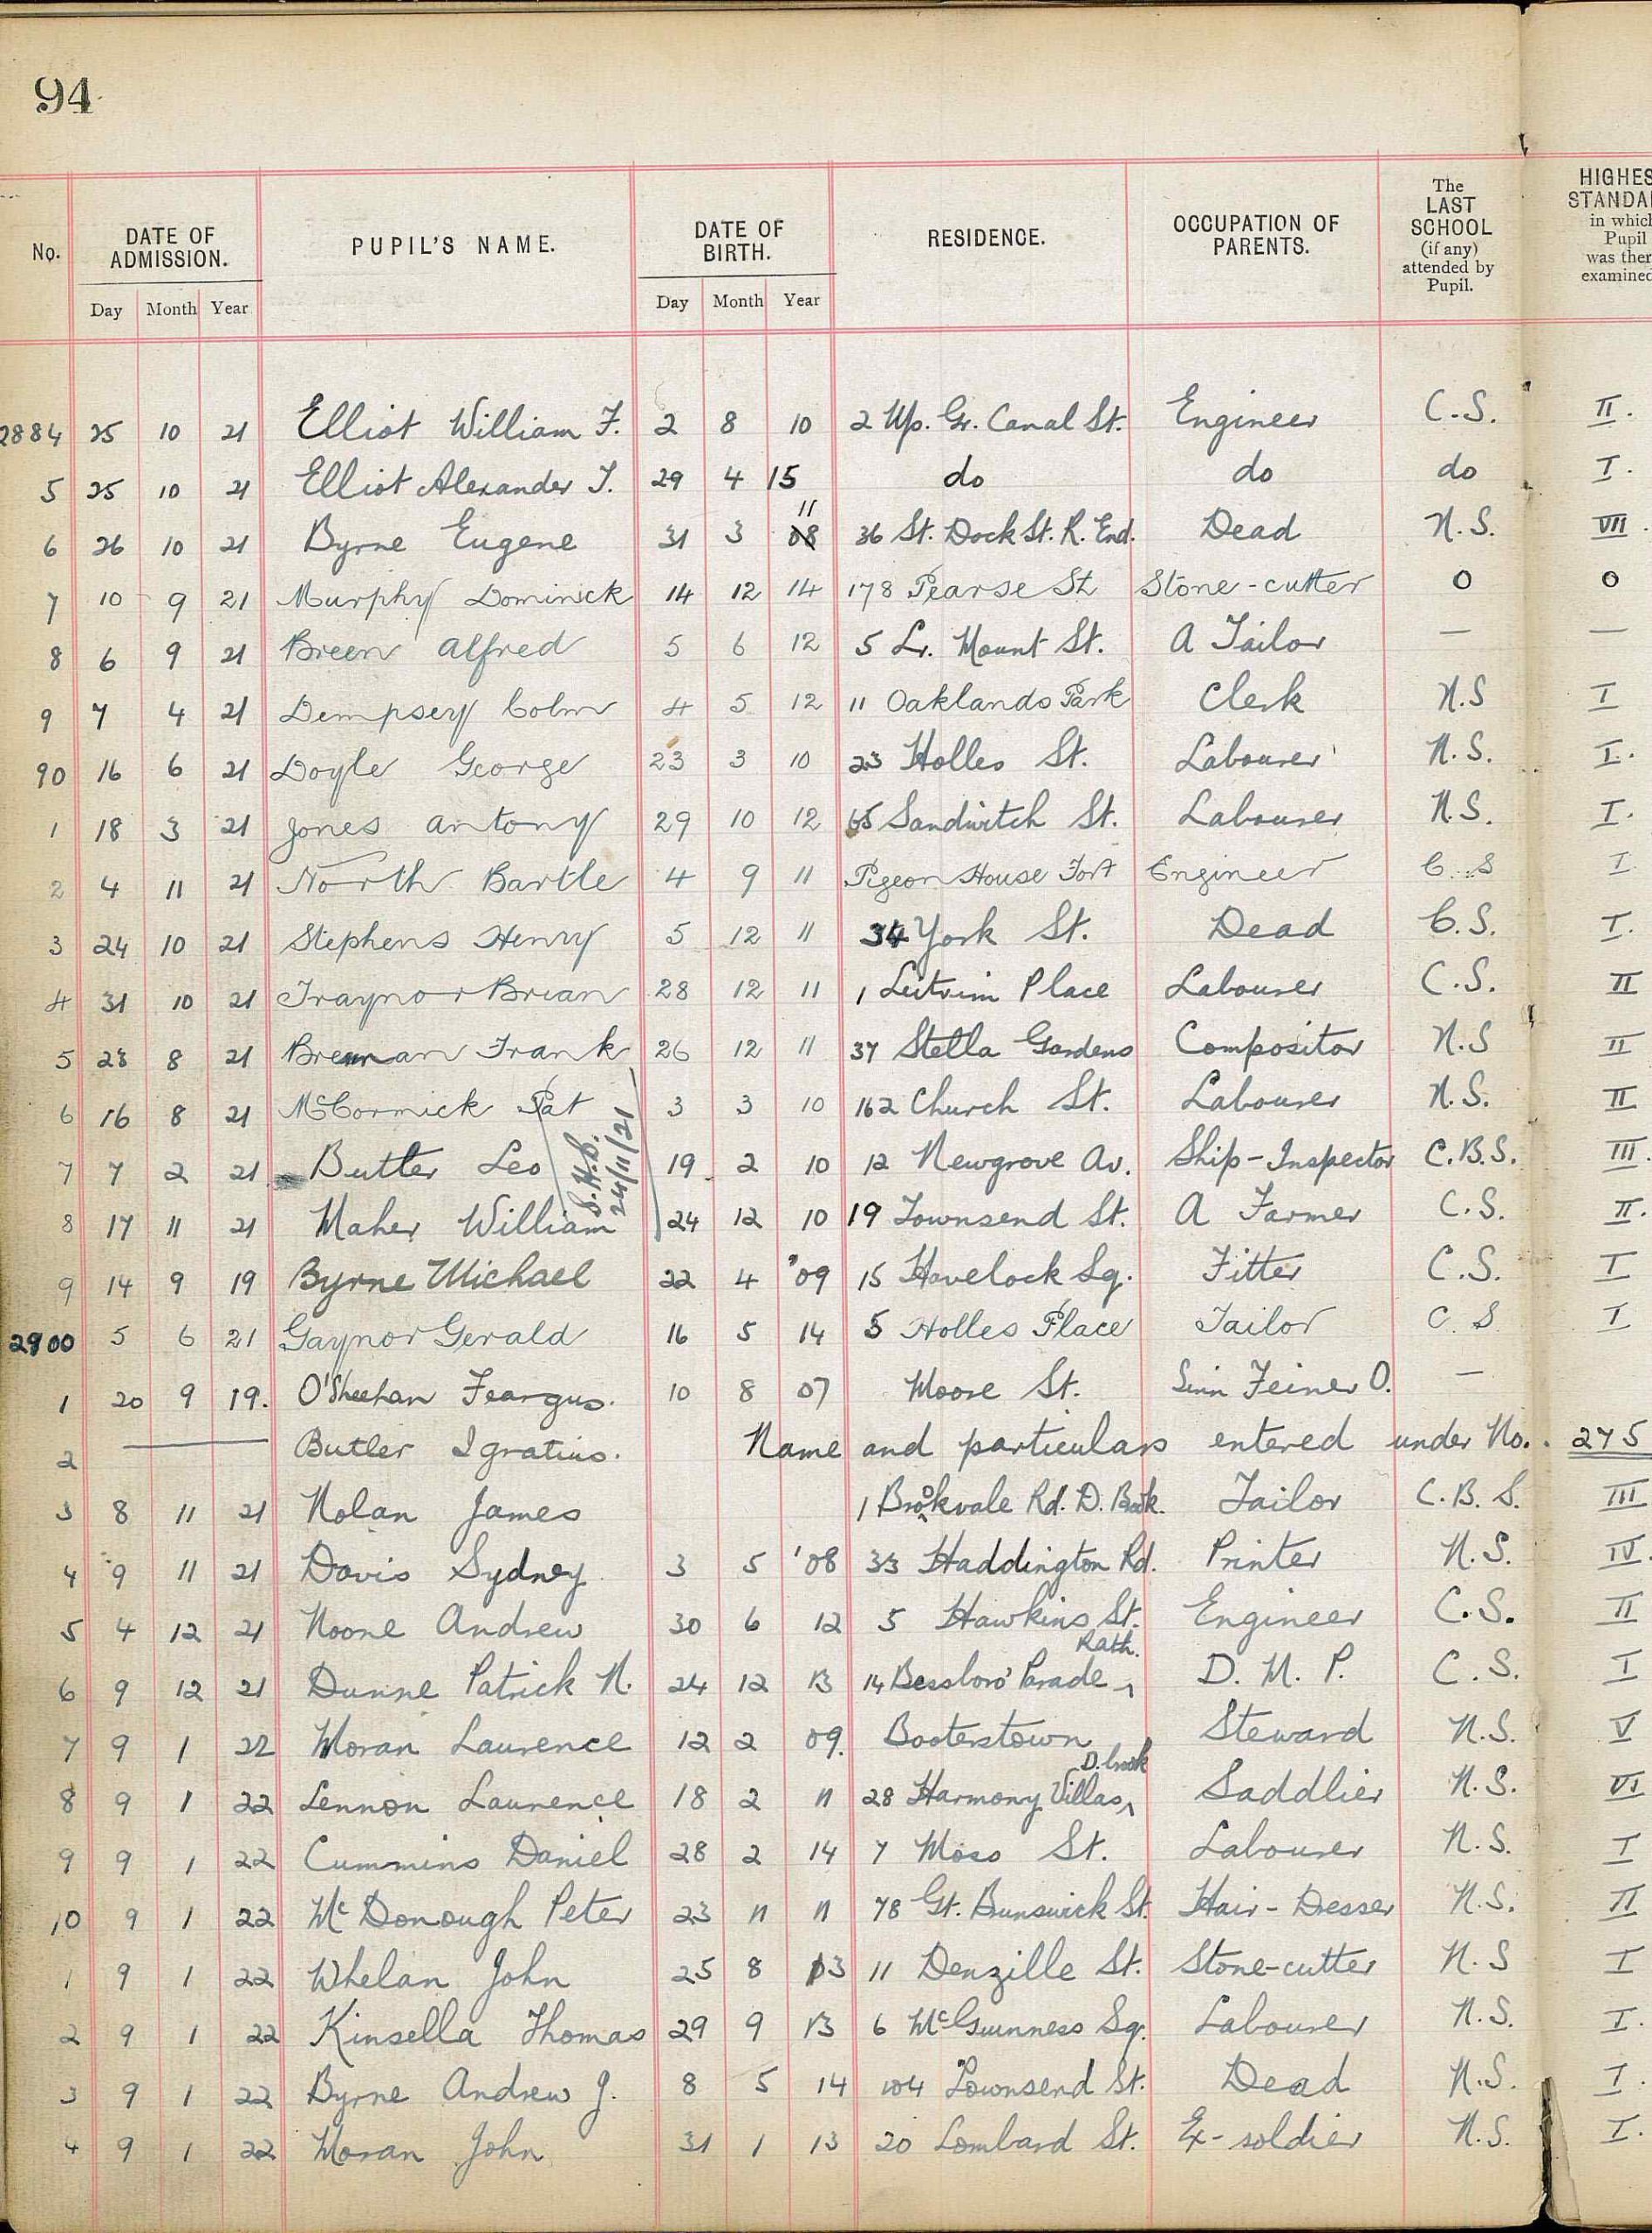 94
No. DATE OF ADMISSION. PUPIL'S NAME. DATE OF BIRTH. RESIDENCE. OCCUPATION OF PARENTS. The LAST SCHOOL (if any) attended by Pupil. HIGHES STANDA in which Pupil was ther examined
Day Month Year Day Month Year
2884 25 10 21 Elliot William F. 2 8 10 2 Up. Gr. Canal St. Engineer C.S. II.
5 25 10 21 Elliot Alexander J. 29 4 15 do do do I.
6 26 10 21 Byrne Eugene 31 3 08 11 36 St. Dock St. R. End. Dead N.S. VII.
7 10 9 21 Murphy Dominick 14 12 14 178 Pearse St Stone-cutter 0 0
8 6 9 21 Breen Alfred 5 6 12 5 Lr. Mount St. A Tailor — —
9 7 4 21 Dempsey Colm 4 5 12 11 Oaklands Park Clerk N.S I
90 16 6 21 Doyle George 23 3 10 23 Holles St. Labourer N.S. I.
1 18 3 21 Jones Antony 29 10 12 65 Sandwitch St. Labourer N.S. I.
2 4 11 21 North Bartle 4 9 11 Pigeon House Fort Engineer C.S I
3 24 10 21 Stephens Henry 5 12 11 34 York St. Dead C.S. I.
4 31 10 21 Traynor Brian 28 12 11 1 Leitrim Place Labourer C.S. II
5 23 8 21 Brennan Frank 26 12 11 37 Stella Gardens Compositor N.S II
6 16 8 21 McCormick Pat 3 3 10 162 Church St. Labourer N.S. II
7 7 2 21 Butler Leo 19 2 10 12 Newgrove Av. Ship-Inspector C.B.S. III.
24/11/21
8 17 11 21 Maher William 24 12 10 19 Townsend St. A Farmer C.S. II.
9 14 9 19 Byrne Michael 22 4 '09 15 Havelock Sq. Fitter C.S. I
2900 5 6 21 Gaynor Gerald 16 5 14 5 Holles Place Tailor C.S I
1 20 9 19. O'Sheehan Feargus. 10 8 07 Moore St. Sinn Feiner O. —
2 — Butler Ignatius. Name and particulars entered under No. 275
3 8 11 21 Nolan James 1 Brookvale Rd. D. Brook. Tailor C.B.S. III
4 9 11 21 Davis Sydney 3 5 '08 33 Haddington Rd. Printer N.S. IV.
5 4 12 21 Noone Andrew 30 6 12 5 Hawkins St. Engineer C.S. II
6 9 12 21 Dunne Patrick N. 24 12 13 14 Bessboro' Parade Rath. D.M.P. C.S. I
7 9 1 22 Moran Laurence 12 2 09. Booterstown Steward N.S. V
8 9 1 22 Lennon Laurence 18 2 11 28 Harmony Villas D.brook Saddlier N.S. VI
9 9 1 22 Cummins Daniel 28 2 14 7 Moss St. Labourer N.S. I
10 9 1 22 McDonough Peter 23 11 11 78 Gt. Brunswick St. Hair-Dresser N.S. II
1 9 1 22 Whelan John 25 8 13 11 Denzille St. Stone-cutter N.S I
2 9 1 22 Kinsella Thomas 29 9 13 6 McGuinness Sq. Labourer N.S. I.
3 9 1 22 Byrne Andrew J. 8 5 14 104 Townsend St. Dead N.S. I.
4 9 1 22 Moran John 31 1 13 20 Lombard St. Ex-soldier N.S. I.